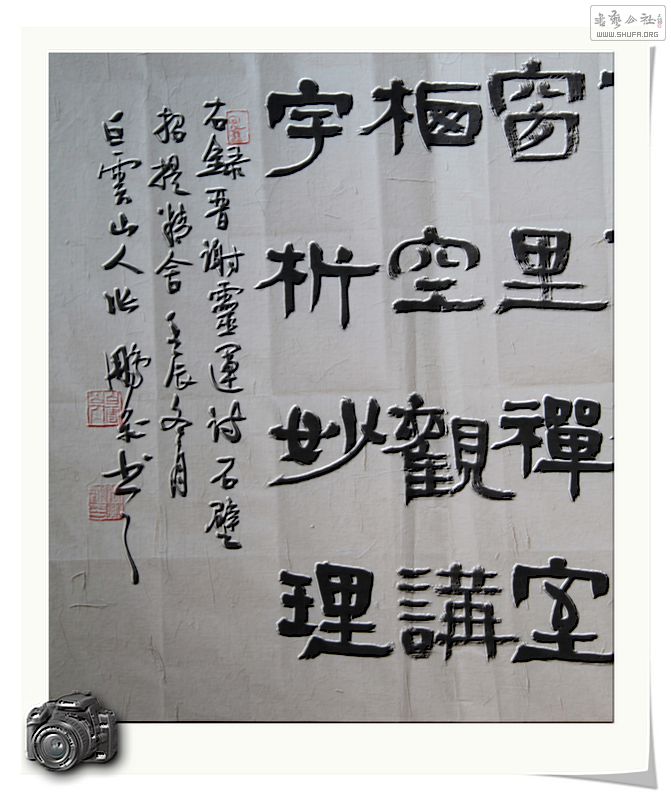 窗里禪室
栖空觀講
宇析妙理
右録晋谢靈運诗石壁
招提精舍壬辰冬月
白雲山人张鹏书
书艺公社
WWW.SHUFA.ORG